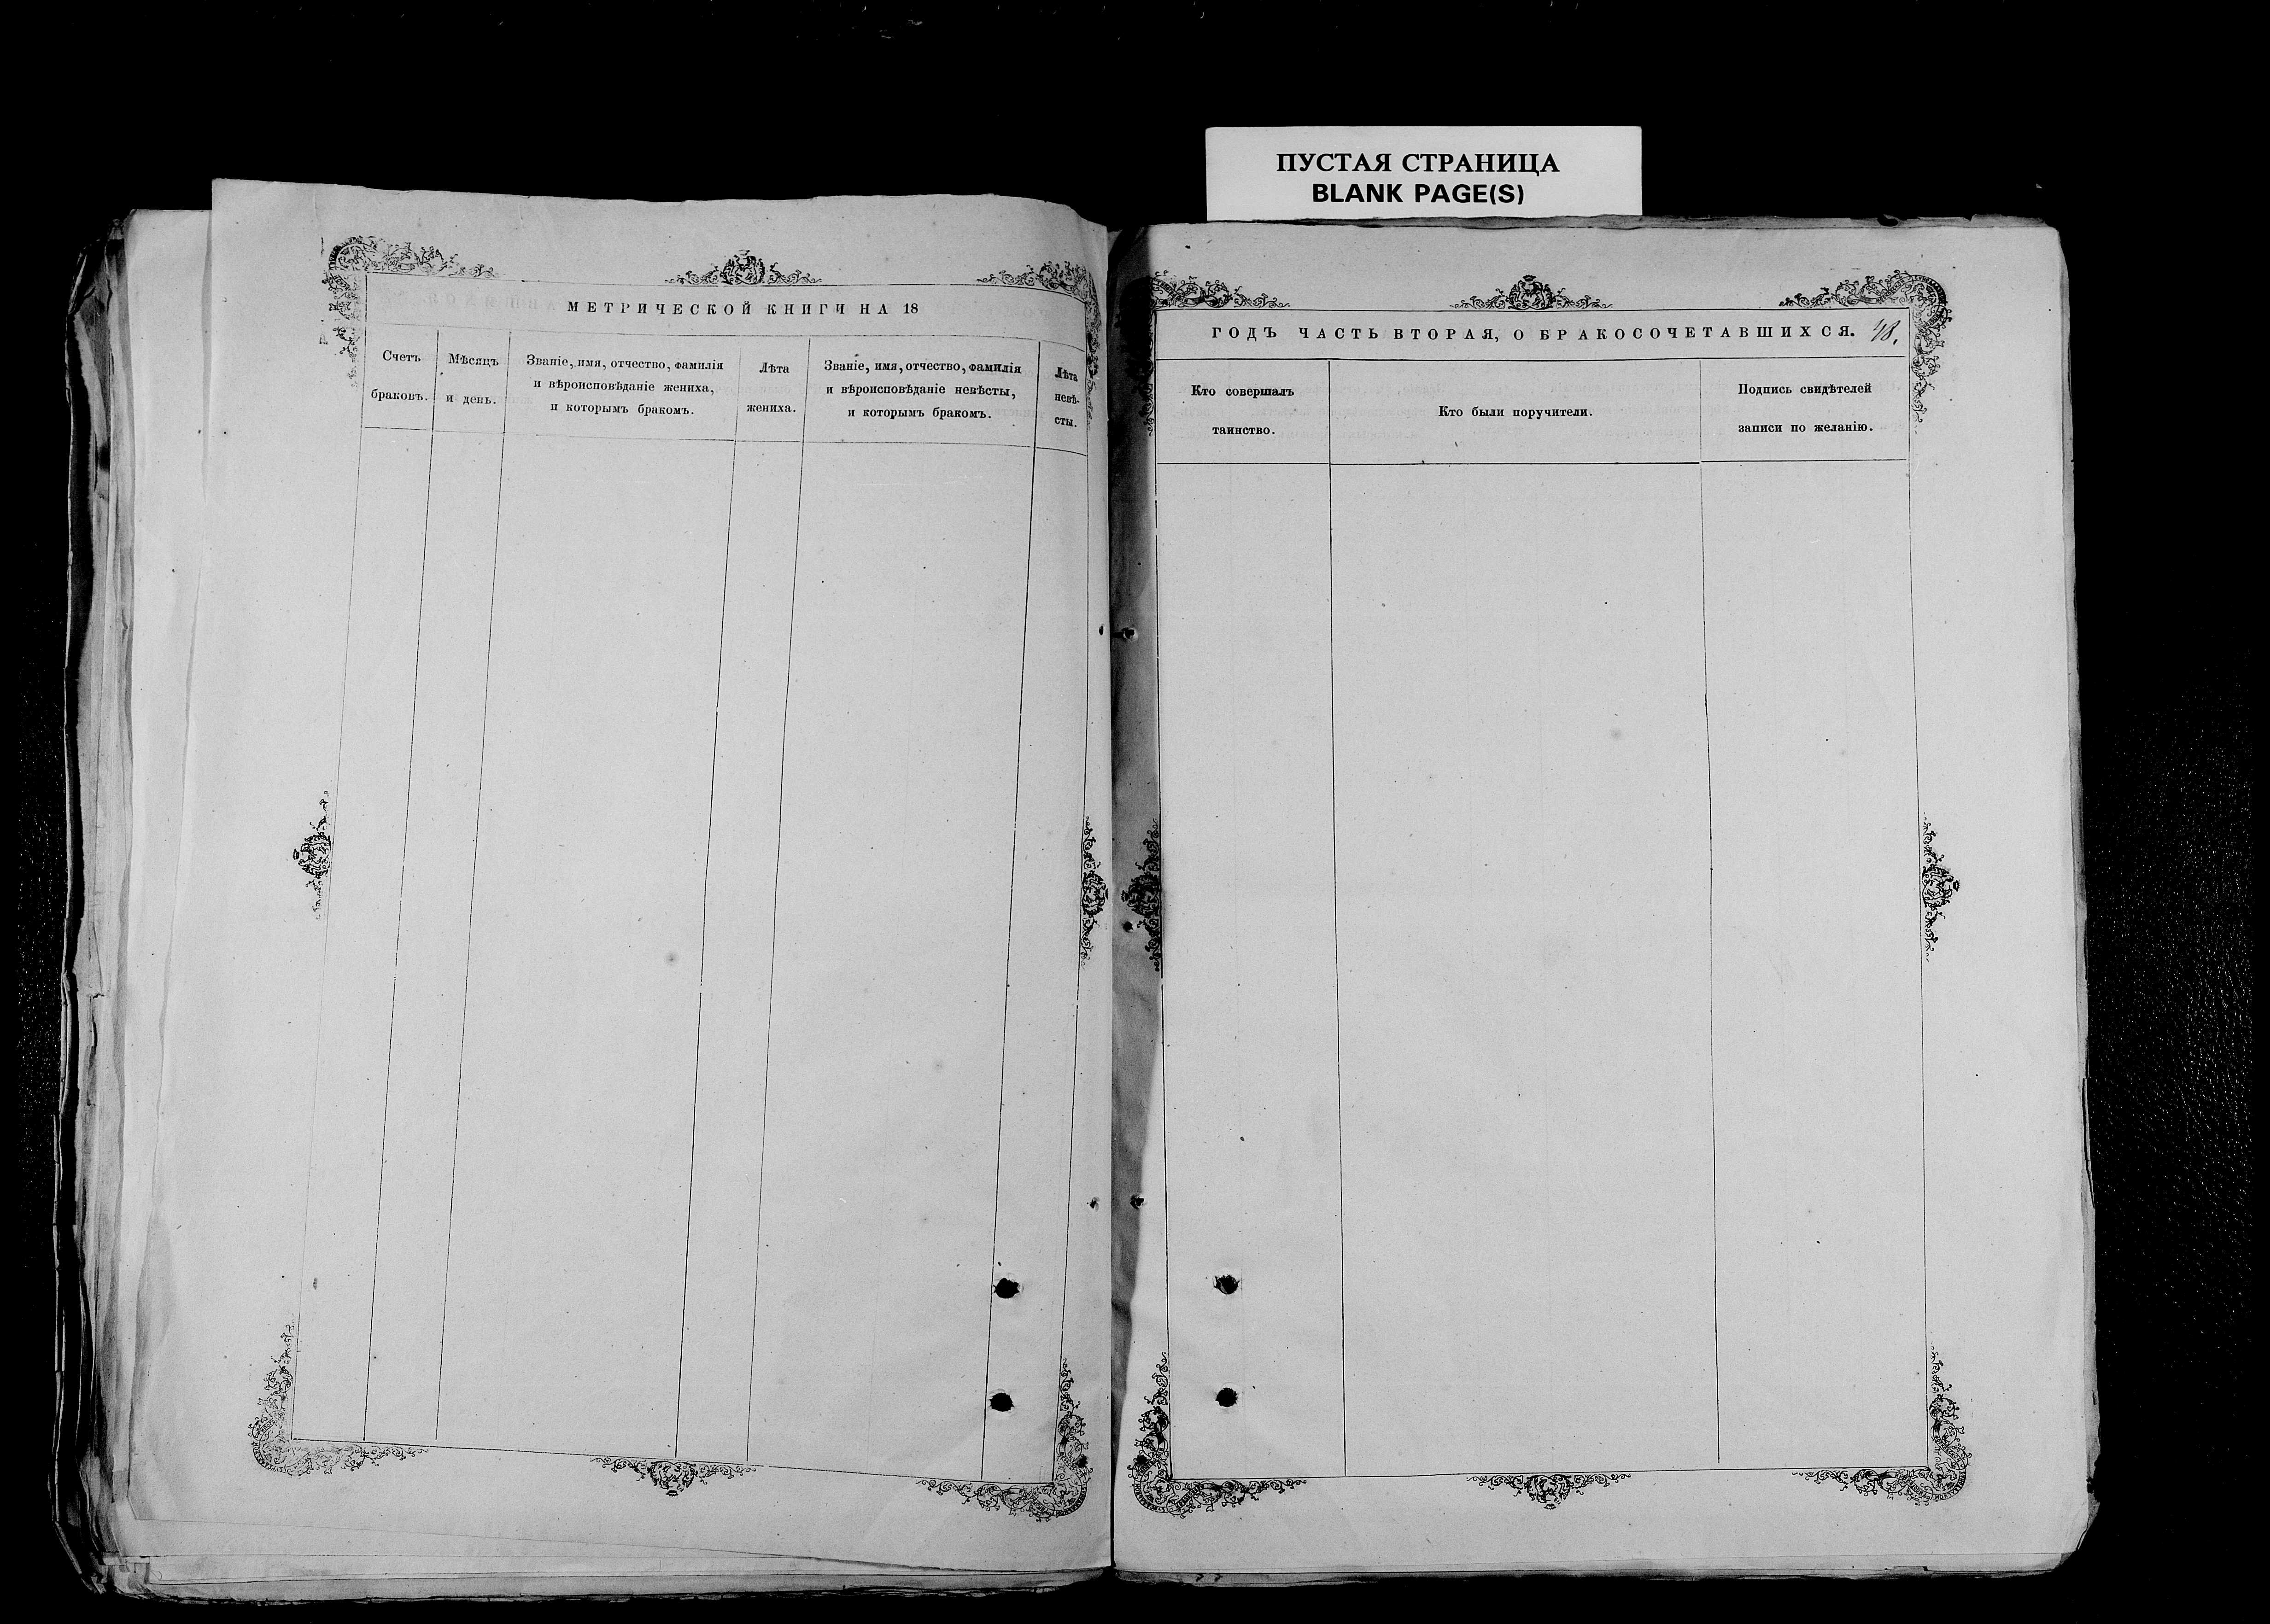 ПУСТАЯ СТРАНИЦА
BLANK PAGE(S)
МЕТРИЧЕСКОЙ КНИГИ НА 18
Счетъ
браковъ.
Мѣсяцъ
и день.
Званіе, имя, отчество, фамилія
и вѣроисповѣданіе жениха,
и которымъ бракомъ.
Лѣта
жениха.
Званіе, имя, отчество, фамилія
и вѣроисповѣданіе невѣсты,
и которымъ бракомъ.
Лѣта
невѣ-
сты.
ГОДЪ ЧАСТЬ ВТОРАЯ, О БРАКОСОЧЕТАВШИХСЯ. 48.
Кто совершалъ
таинство.
Кто были поручители.
Подпись свидѣтелей
записи по желанію.